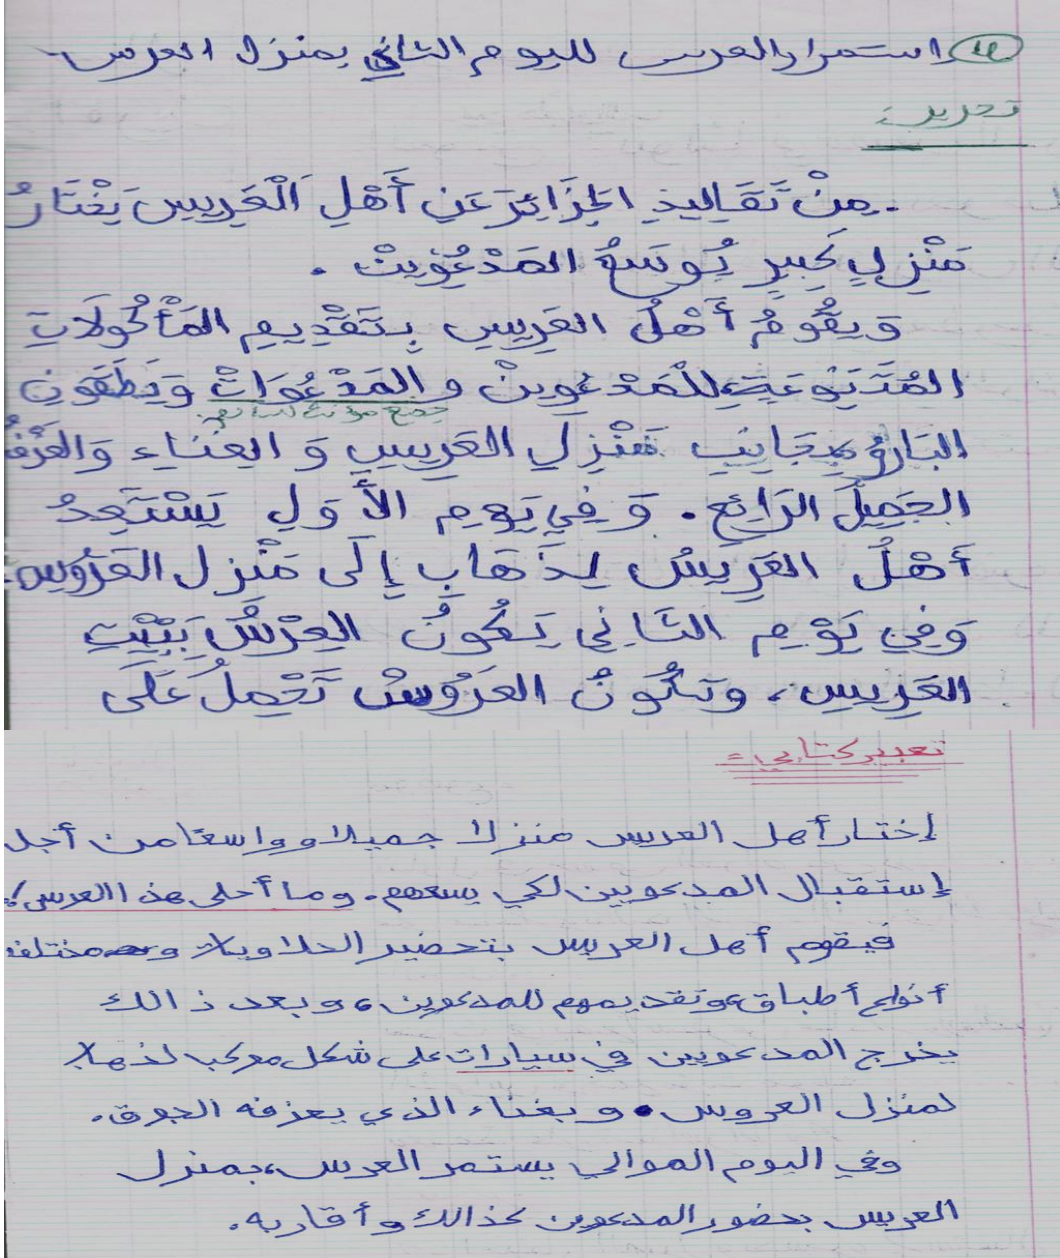 ④ استمرار العرس لليوم الثاني بمنزل العرس
تحرير:
مِنْ تَقَالِيدِ الجَزَائِرَ عَنِ أَهْلِ الْعَرِيسِ يَخْتَارُ
مَنْزِلِ كَبِيرٍ يُوسَعُ المَدْعُوِينْ .
وَيَقُومُ أَهْلُ العَرِيسِ بِتَقْدِيمِ المَأْكُولَاتِ
المُتَنَوِعَةِ لِلْمَدْعُوِينْ و المَدْعُوَاتْ وَيَطَقُونِ
جمع مؤنث سالم
البَارُو بِجَانِبِ مَنْزِلِ العَرِيسِ وَ الغِنَاءِ وَالعَزْفُ
الجَمِيلَ الرَائِعِ. وَ فِي يَومِ الأَوَلِ يَسْتَعِدُ
أَهْلُ العَرِيسْ لِذَهَابِ إِلَى مَنْزِل العَرُوسِ.
وَفِي يَوْمِ الثَانِي يَكُونُ العِرْسُ بَيْتِ
العَرِيسِ، وتَكُونُ العَرُوسْ تَحْمِلُ عَلَى
تعبير كتابي:
إختار أهل العريس منزلا جميلا وواسعا من أجل
إستقبال المدعوين لكي يسعهم. وما أحلى هذا العرس!
فيقوم أهل العريس بتحضير الحلويات و مختلف
أنواع أطباق وتقديمهم للمدعوين، وبعد ذالك
يخرج المدعوين في سيارات على شكل موكب لذهاب
لمنزل العروس. وبغناء الذي يعزفه الجوق.
وفي اليوم الموالي يستمر العرس، بمنزل
العريس بحضور المدعوين كذالك وأقاربه.